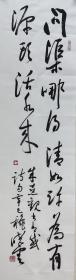 问渠哪得清如许为有
源头活水来
朱熹观书有感
诗句